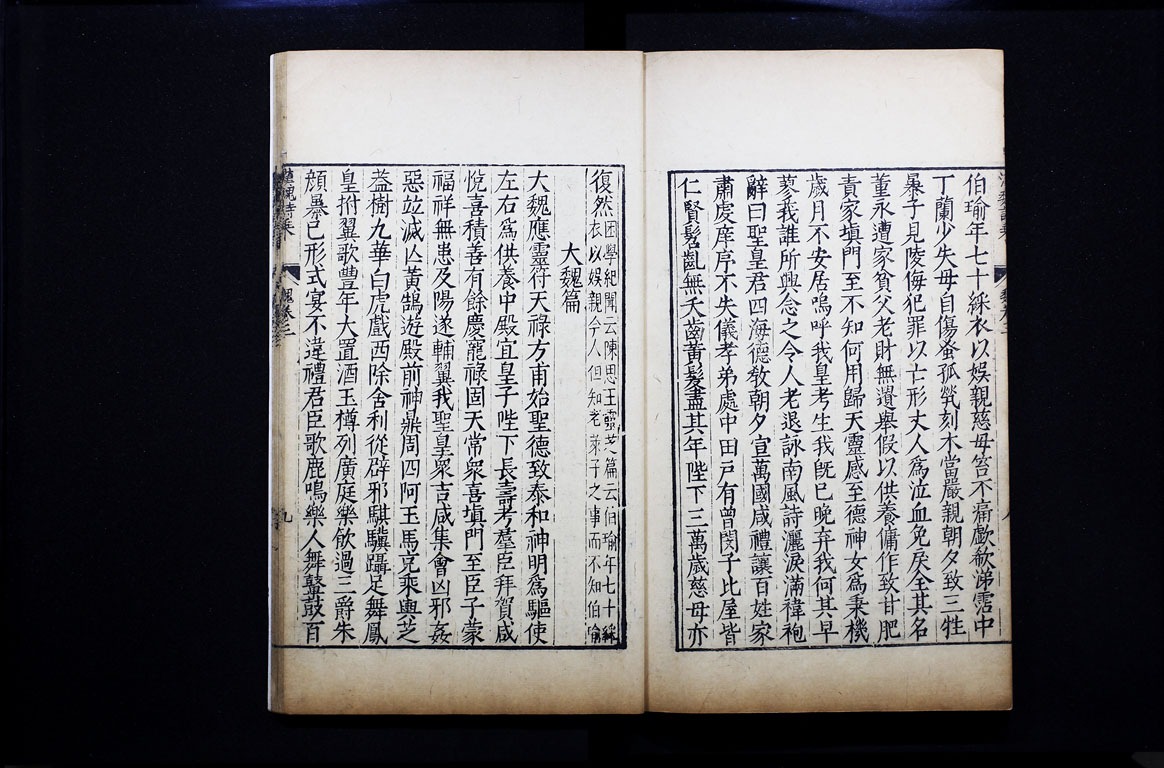 伯瑜年七十綵衣以娛親慈母笞不痛歔欷涕霑巾
丁蘭少失母自傷蚤孤煢刻木當嚴親朝夕致三牲
暴子見陵侮犯罪以亡形丈人爲泣血免戾全其名
董永遭家貧父老財無遺舉假以供養傭作致甘肥
責家塡門至不知何用歸天靈感至德神女爲秉機
歲月不安居嗚呼我皇考生我旣已晚弃我何其早
蓼我誰所興念之令人老退詠南風詩灑淚滿褘袍
辭曰聖皇君四海德敎朝夕宣萬國咸禮讓百姓家
肅虔庠序不失儀孝弟處中田戸有曾閔子比屋皆
仁賢髫齔無夭齒黃髮盡其年陛下三萬歲慈母亦
復然困學紀聞云陳思王靈芝篇云伯瑜年七十綵
衣以娛親今人但知老萊子之事而不知伯瑜
大魏篇
大魏應靈符天祿方甫始聖德致泰和神明爲驅使
左右爲供養中殿宜皇子陛下長壽考羣臣拜賀咸
悅喜積善有餘慶寵祿固天常衆喜塡門至臣子蒙
福祥無患及陽遂輔翼我聖皇衆吉咸集會凶邪姦
惡竝滅亾黃鵠遊殿前神鼎周四阿玉馬克乘輿芝
葢樹九華白虎戲西除舍利從辟邪騏驥躡足舞鳳
皇拊翼歌豐年大置酒玉樽列廣庭樂飮過三爵朱
顏暴已形式宴不違禮君臣歌鹿鳴樂人舞鼙鼓百
魏卷三
九